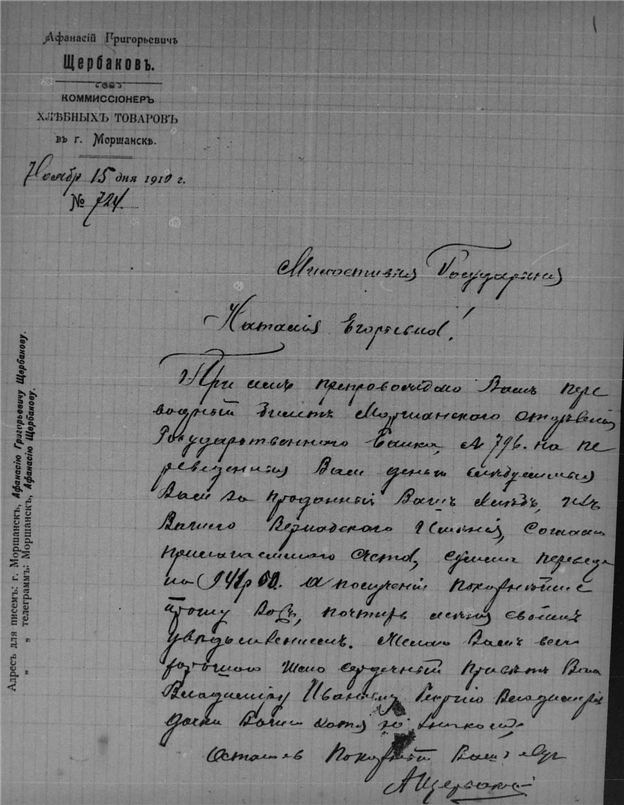 Афанасій Григорьевичъ
Щербаковъ.
КОММИССІОНЕРЪ
ХЛѢБНЫХЪ ТОВАРОВЪ
въ г. Моршанскѣ.
Ноябр 15 дня 1910 г.
№ 724.
Милостивая Государыня
Наталія Егорьевна!
При семъ препровождаю Вамъ пере
водный билетъ Моршанскаго отдѣленія
Государственнаго Банка, № 796. на пе
реведенныя Вамъ деньги слѣдуемыя
Вамъ за проданный Вашъ хлѣбъ, изъ
Вашего Вернадскаго Имѣнія, согласно
прилагаемаго счета, сумма перевода
на 941р 00. о полученіи Покорнѣйше
прошу Васъ, почтить меня своимъ
увѣдомленіемъ. Желаю Вамъ всего
хорошаго шлю сердечный привѣтъ
Владиміру Ивановичу Георгію Владимір
дочки Вашей хотя не
Остаюсь Покорный Вашъ слуга
АЩербаковъ
Адресъ для писемъ: г. Моршанскъ, Афанасію Григорьевичу Щербакову.
„ „ телеграммъ: Моршанскъ, Афанасію Щербакову.